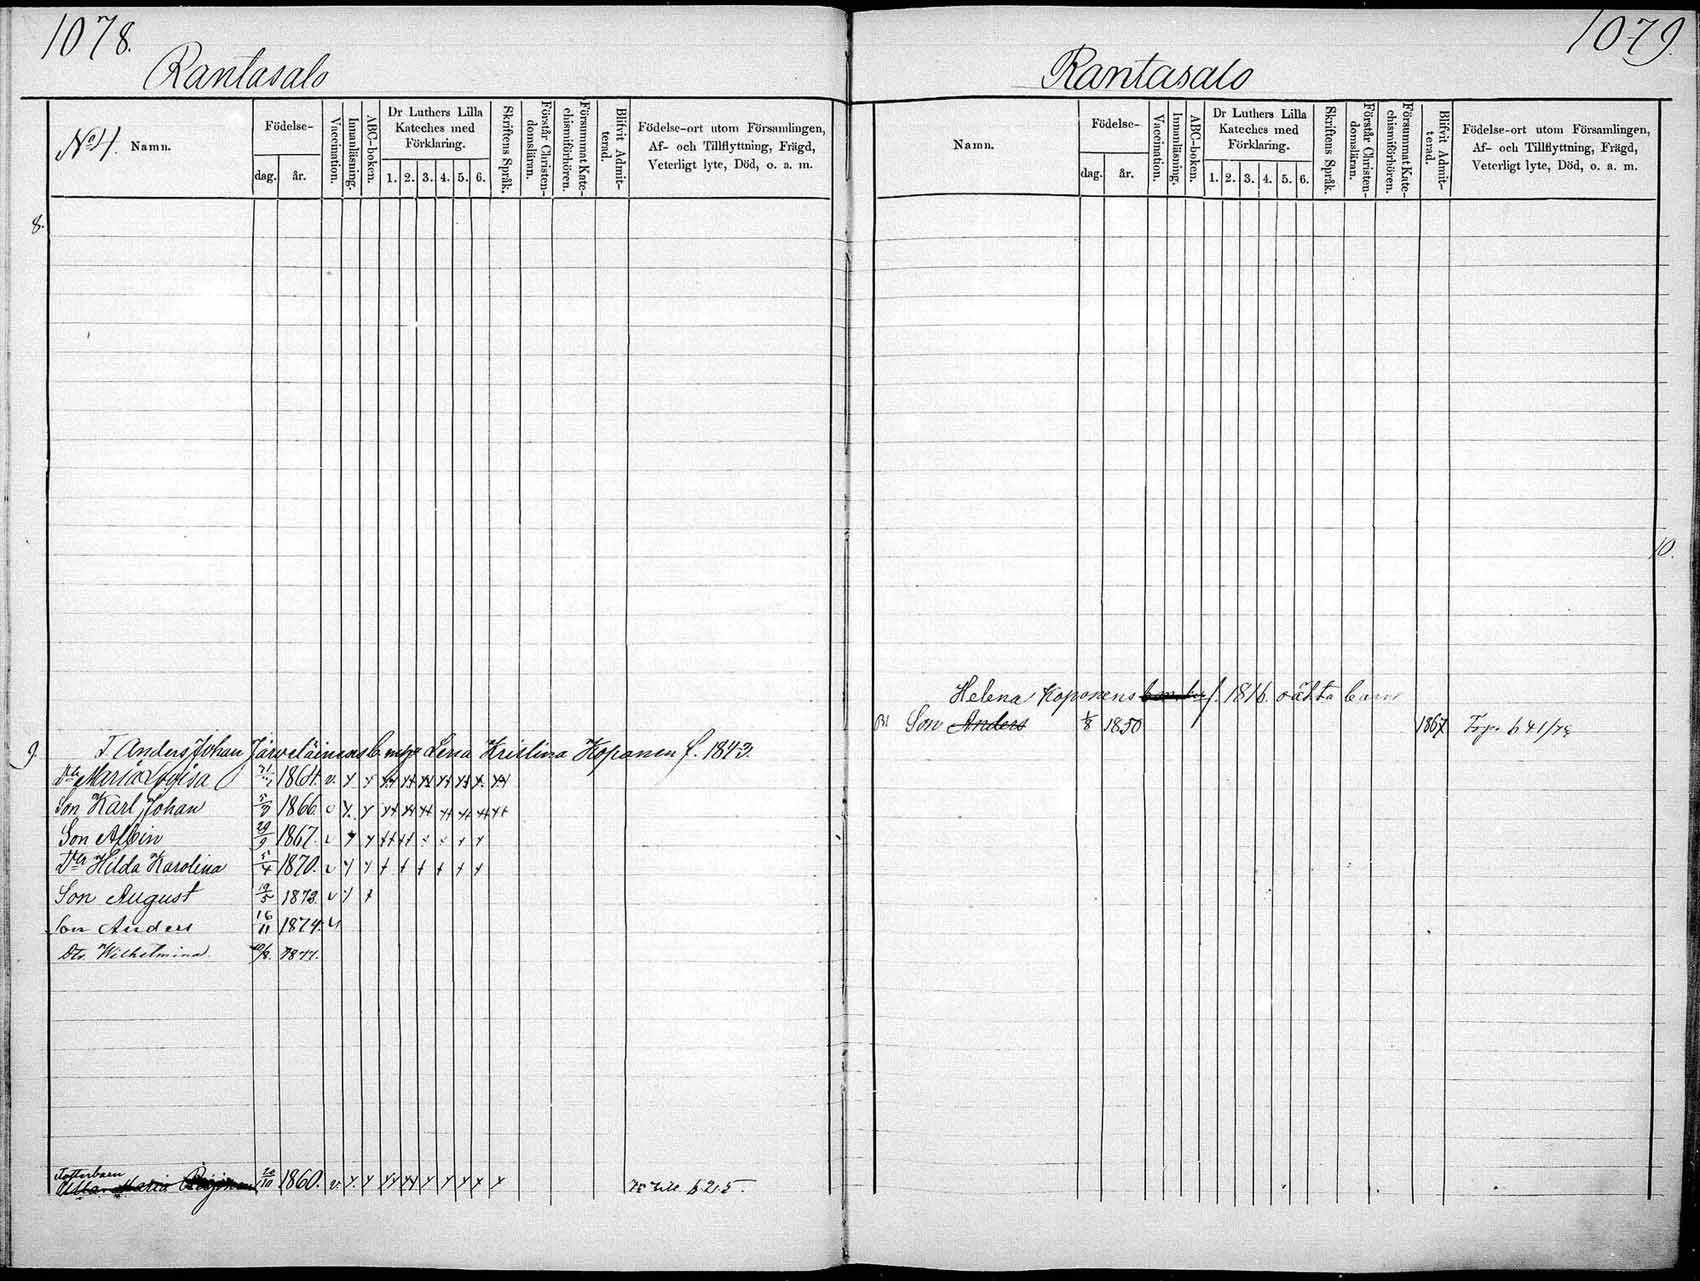 1078.
Rantasalo
No 4. Namn.
Födelse-
dag. år.
Vaccination.
Innanläsning.
ABC-boken.
Dr Luthers Lilla
Kateches med
Förklaring.
1. 2. 3. 4. 5. 6.
Skriftens Språk.
Förstår Christen-
domsläran.
Försummat Kate-
chismiförhören.
Blifvit Admit-
terad.
Födelse-ort utom Församlingen,
Af- och Tillflyttning, Frägd,
Veterligt lyte, Död, o. a. m.
8.
9. T. Anders Johan Järveläinens b. m/g Lena Kristina Koponen f. 1843.
Dtr Maria Lovisa 1864. v.
Son Karl Johan 5/9 1866 v
Son Albin 29/9 1867. v
Dtr Hilda Karolina 5/4 1870. v
Son August 19/5 1873. v
Son Anders 16/11 1874. v
Dtr. Wilhelmina. 1877.
Fosterbarn
Maria 20/10 1860. v. 625.
1079.
Rantasalo
Namn.
Födelse-
dag. år.
Vaccination.
Innanläsning.
ABC-boken.
Dr Luthers Lilla
Kateches med
Förklaring.
1. 2. 3. 4. 5. 6.
Skriftens Språk.
Förstår Christen-
domsläran.
Försummat Kate-
chismiförhören.
Blifvit Admit-
terad.
Födelse-ort utom Församlingen,
Af- och Tillflyttning, Frägd,
Veterligt lyte, Död, o. a. m.
10.
Helena Koponens f. 1816. oäkta barn
Son Anders 1/8 1850 1867